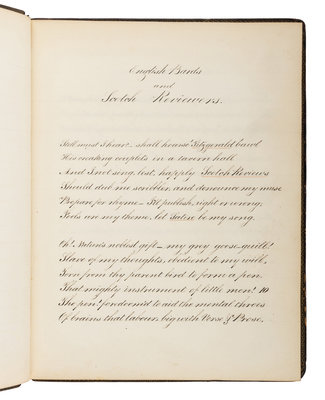 English Bards
and
Scotch Reviewers.
Still must I hear?— shall hoarse Fitzgerald bawl
His creaking couplets in a tavern hall
And I not sing, lest, happly Scotch Reviews
Should dub me scribbler, and denounce my muse
Prepare for rhyme— I'll publish, right or wrong,
Fools are my theme, let satire be my song.
Oh! Nature's noblest gift— my grey goose-quill!
Slave of my thoughts, obedient to my will,
Torn from thy parent bird to form a pen
That mighty instrument of little men! 10
The pen! foredoom'd to aid the mental throes
Of brains that labour, big with Verse & Prose,